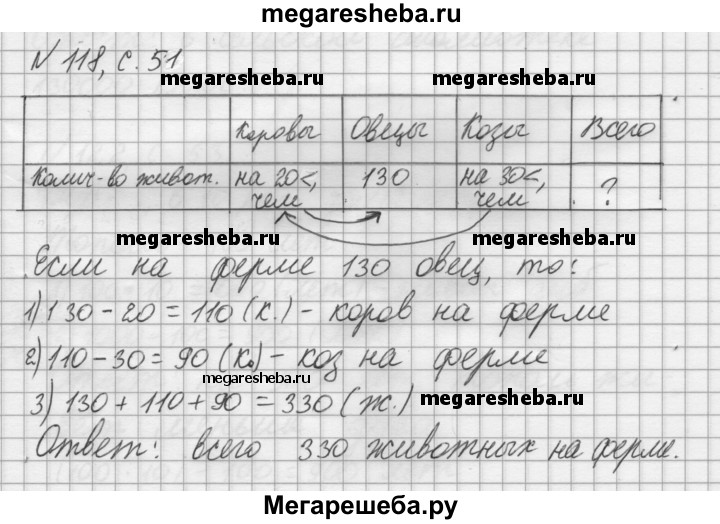 megaresheba.ru
N 118, с. 51
megaresheba.ru megaresheba.ru
Коровы Овецы Козы Всего
Колич-во живот. на 20<, чем 130 на 30<, чем ?
megaresheba.ru megaresheba.ru
Если на ферме 130 овец, то:
1) 130 - 20 = 110 (к.) - коров на ферме
2) 110 - 30 = 90 (к.) - коз на ферме
megaresheba.ru
3) 130 + 110 + 90 = 330 (ж.) megaresheba.ru
Ответ: всего 330 животных на ферме.
Мегарешеба.ру